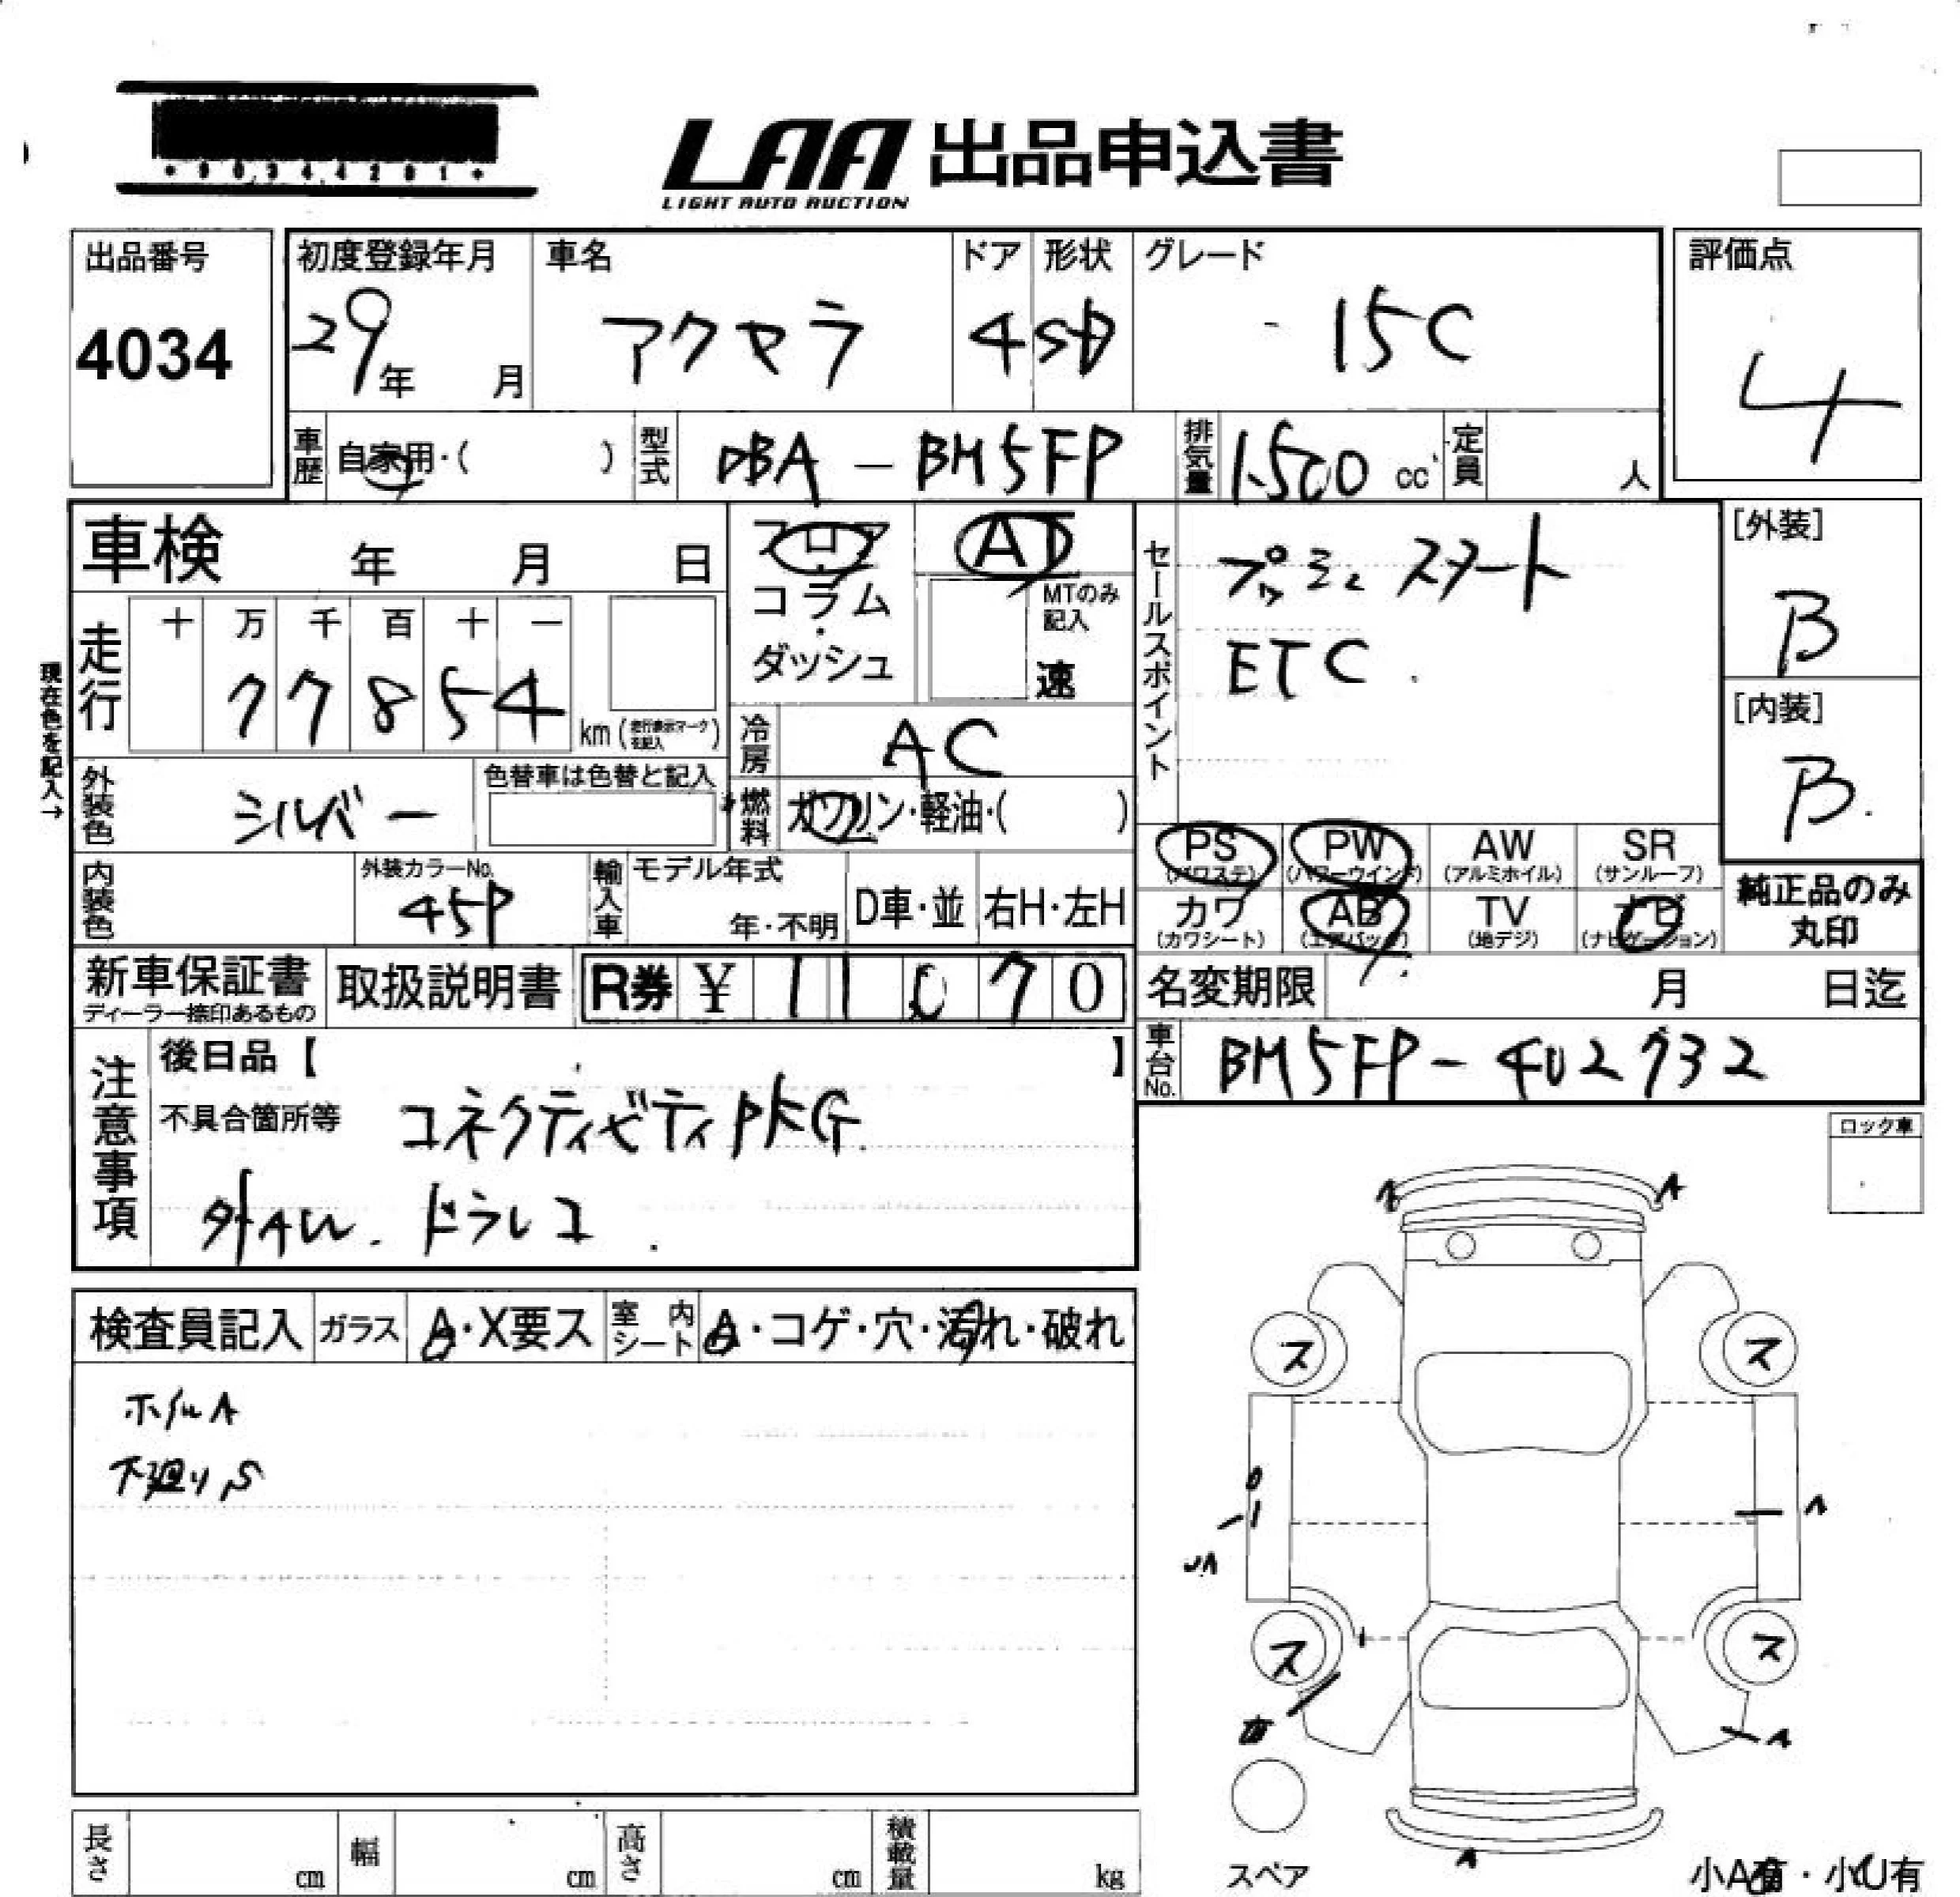 LAA 出品申込書
LIGHT AUTO AUCTION
出品番号
4034
初度登録年月
29年 月
車名
アクセラ
ドア
4
形状
SD
グレード
15C
評価点
4
車歴 自家用・( )
型式 DBA - BM5FP
排気量 1500 cc
定員 人
車検 年 月 日
フロア・コラム・ダッシュ
AT
MTのみ記入
速
セールスポイント
プッシュスタート
ETC
[外装]
B
[内装]
B
現在色を記入→
走行 十 万 千 百 十 一
77854 km (走行表示マークを記入)
冷房 AC
外装色 シルバー
色替車は色替と記入
燃料 ガソリン・軽油・( )
PS (パワステ)
PW (パワーウインド)
AW (アルミホイル)
SR (サンルーフ)
カワ (カワシート)
AB (エアバック)
TV (地デジ)
ナビ (ナビゲーション)
純正品のみ丸印
内装色
外装カラーNo.
45P
輸入車
モデル年式
年・不明
D車・並
右H・左H
新車保証書
ディーラー捺印あるもの
取扱説明書
R券 ¥ 11070
名変期限 月 日迄
車台No. BM5FP-402732
注意事項
後日品【 】
不具合箇所等 コネクティビティPKG.
外AW. ドラレコ.
ロック車
検査員記入 ガラス A・X要ス 室内シート A・コゲ・穴・汚れ・破れ
ホイルA
下廻りS
A A
ス ス
A
UA
ス ス
A
A
スペア
小A有・小U有
長さ cm
幅 cm
高さ cm
積載量 kg